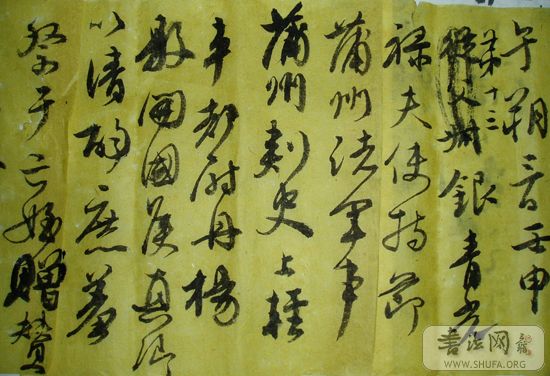 午朔三日壬申
第十三
從父叔銀青光
祿夫使持節
蒲州諸軍事
蒲州刺史上輕
車都尉丹楊
縣開國侯真卿
以清酌庶羞
祭于亡姪贈贊
书法网
WWW.SHUFA.ORG